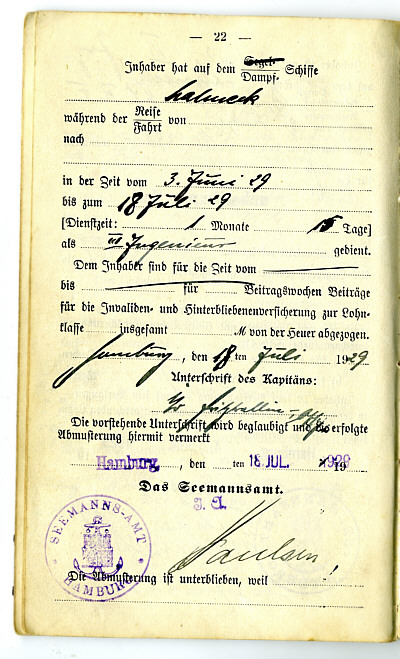 — 22 —
Inhaber hat auf dem Segel- Dampf- Schiffe
während der Reise Fahrt von
nach
in der Zeit vom 3. Juni 29
bis zum 18 Juli 29
[Dienstzeit: 1 Monate 15 Tage]
als III Ingenieur gedient.
Dem Inhaber sind für die Zeit vom
bis für Beitragswochen Beiträge
für die Invaliden- und Hinterbliebenenversicherung zur Lohn-
klasse insgesamt M von der Heuer abgezogen.
Hamburg, den 18 ten Juli 1929
Unterschrift des Kapitäns:
Die vorstehende Unterschrift wird beglaubigt und die erfolgte
Abmusterung hiermit vermerkt
Hamburg, den ten 18. JUL. 1929 19
Das Seemannsamt.
J. A.
Paulsen
SEEMANNS-AMT
HAMBURG
Die Abmusterung ist unterblieben, weil